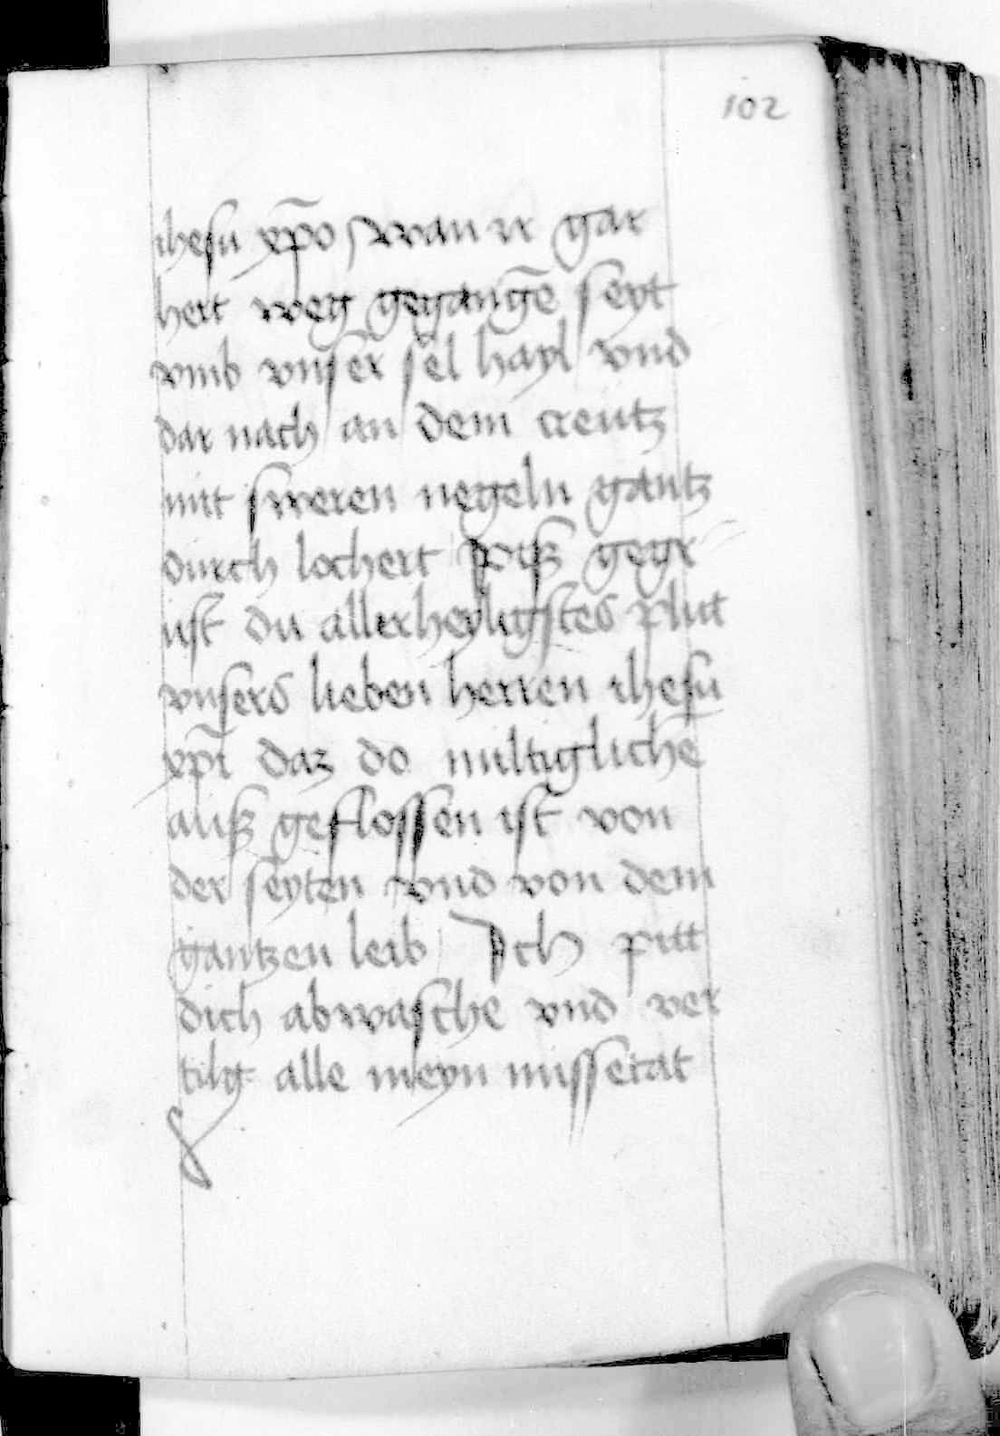 102
ihesu xp̄o wan ir gar
hert weg gegangē seyt
vmb vnser sel hayl vnd
dar nach an dem creutz
mit sweren negeln gantz
durch lochert gegr
ust du allerheyligstes plut
vnsers lieben herren ihesu
xp̄i daz do miltigliche
auß geflossen ist von
der seyten vnd von dem
gantzen leib Ich pitt
dich abwasche vnd ver
tilg alle meyn missetat